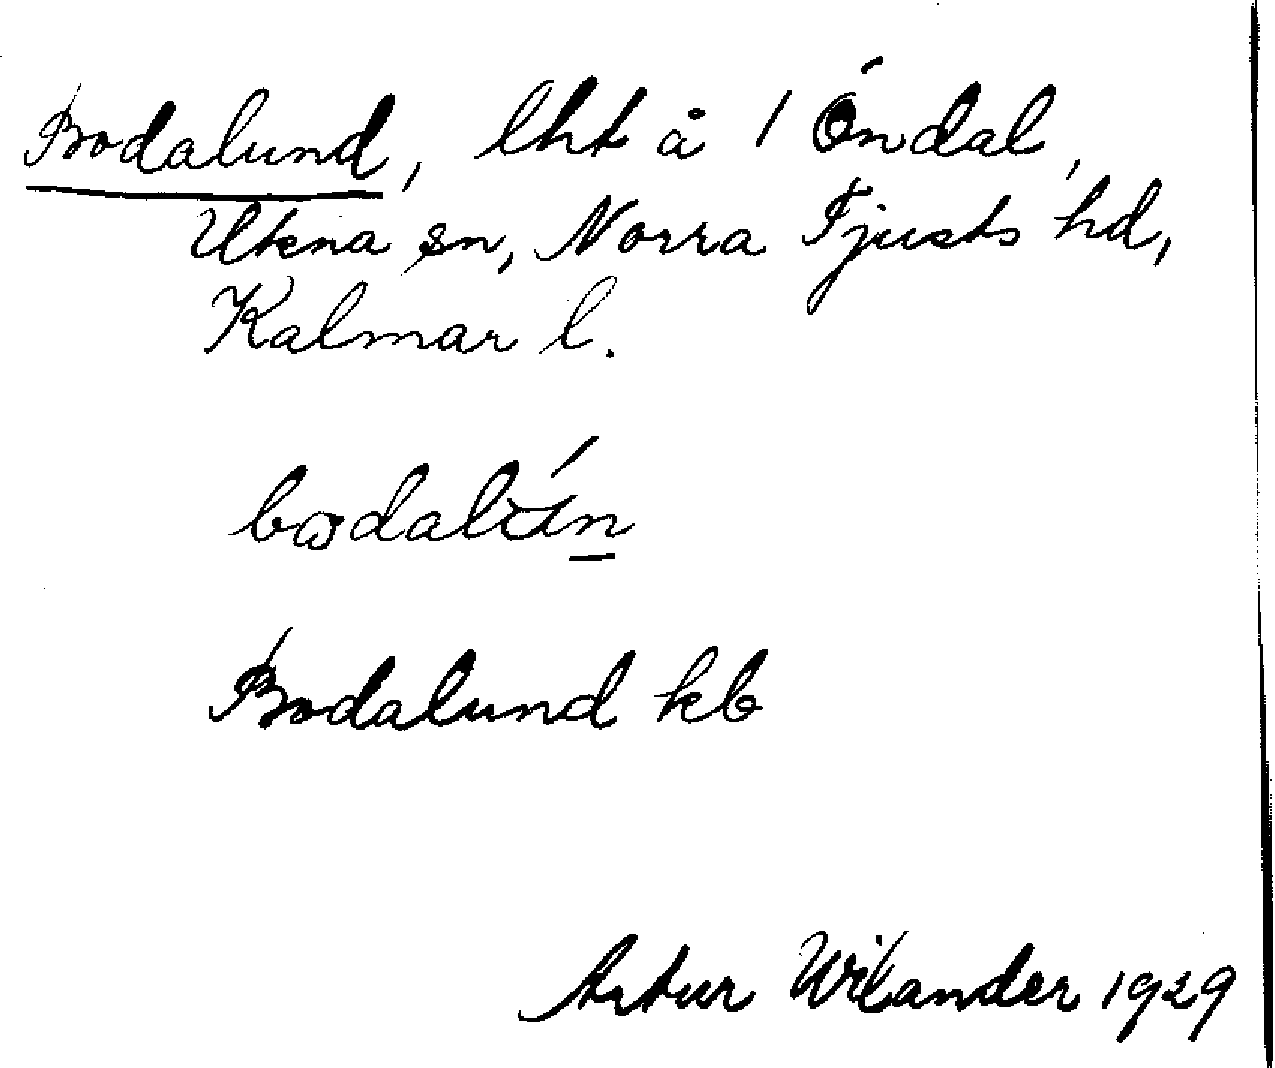 Bodalund, lht å 1 Öndal,
Ukna sn, Norra Tjusts hd,
Kalmar l.
Bodalund kb
Artur Wilander 1929